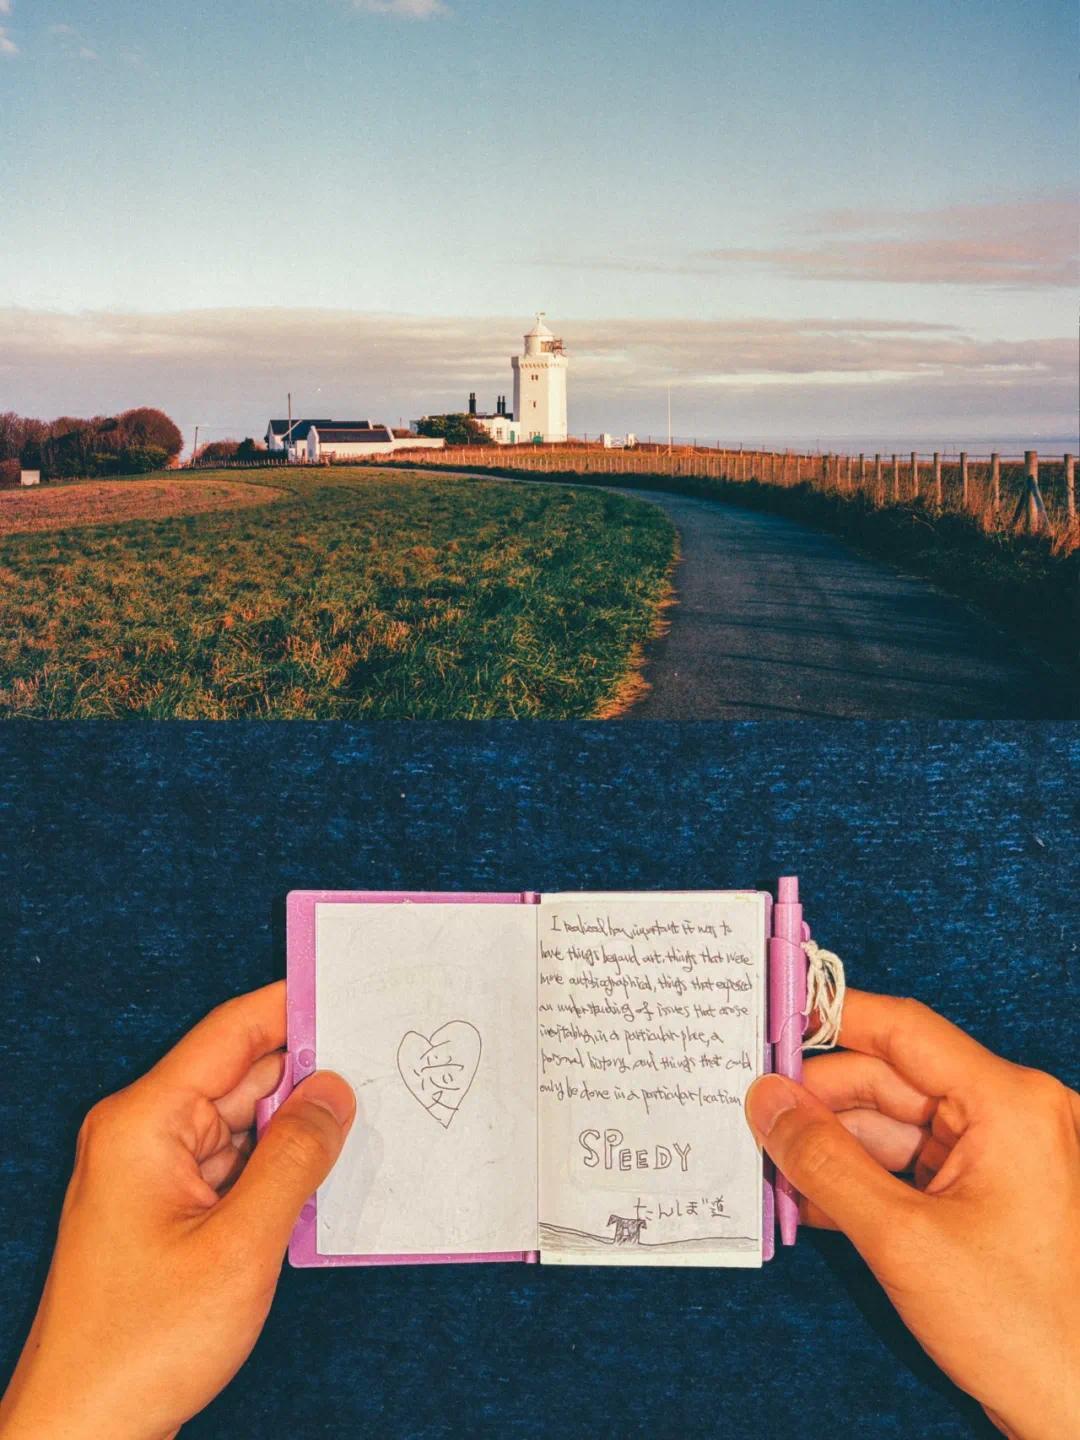 愛
I realized how important it was to
have things beyond art, things that were
more autobiographical, things that exposed
an understanding of issues that arose
inevitably in a particular place, a
personal history, and things that could
only be done in a particular location
SPEEDY
たんしま゛道